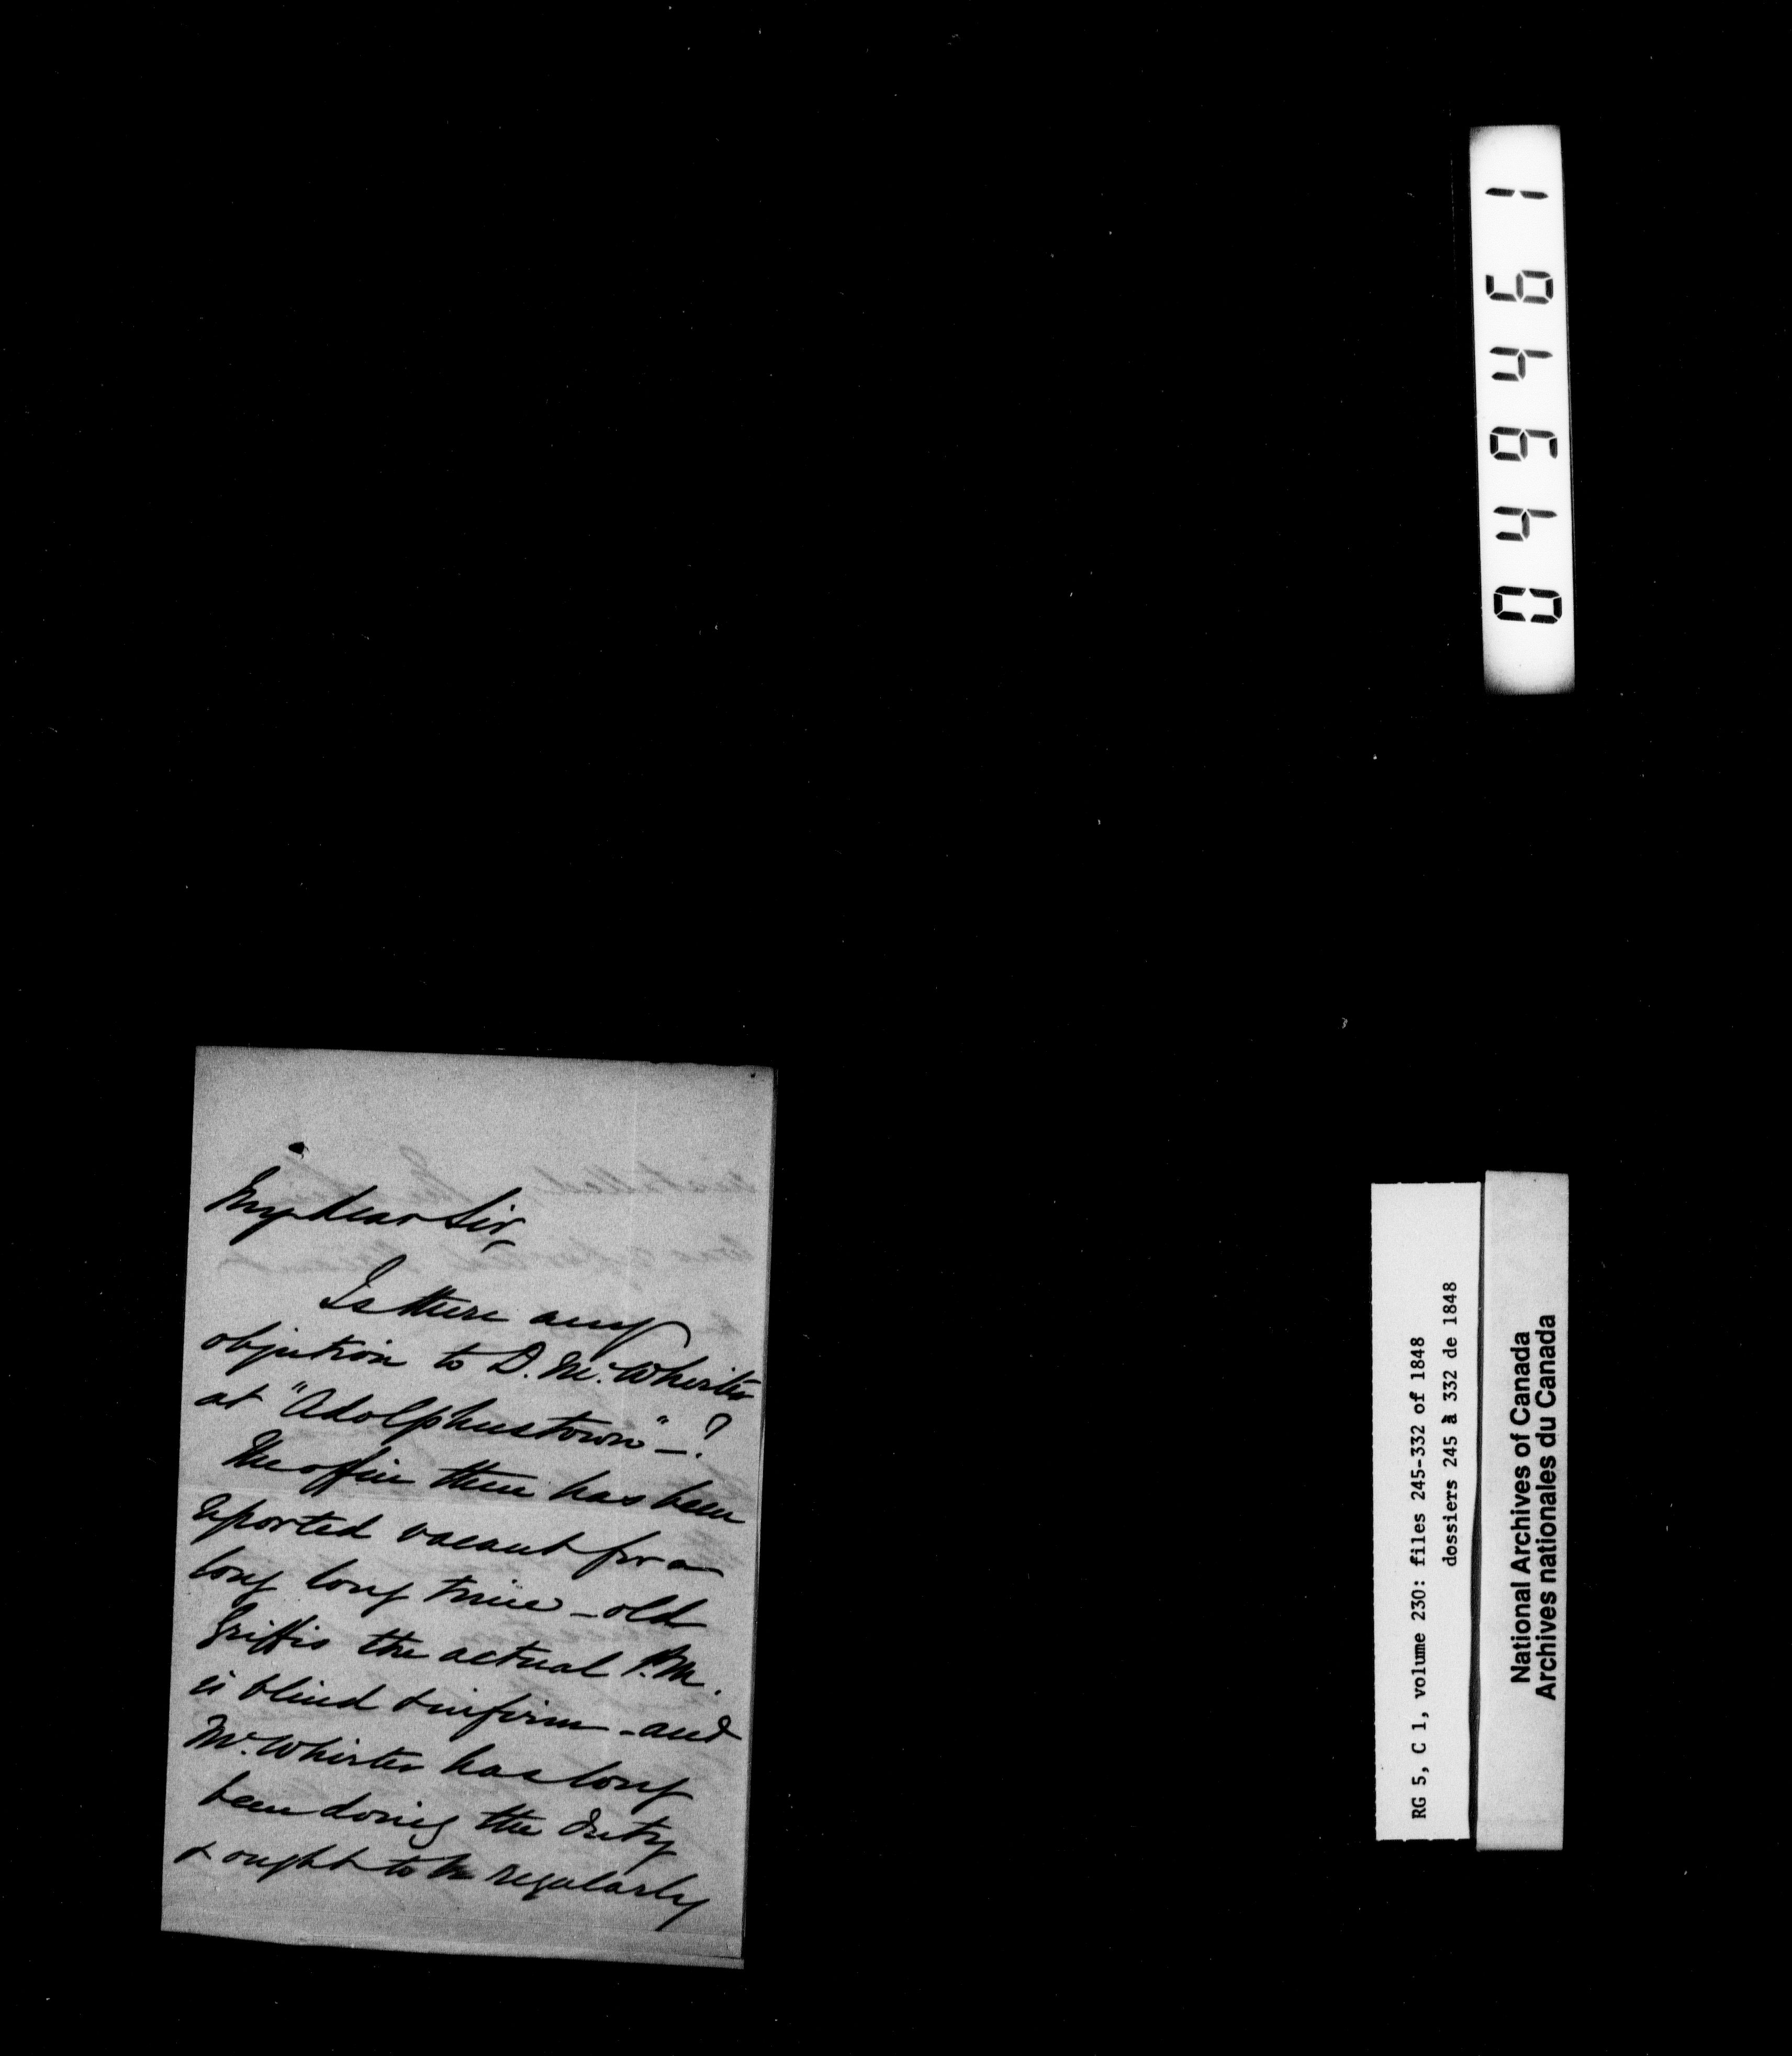 My dear Sir,
Is there any
objection to D. McWhirter
at "Adolphustown"—?
The office there has been
reported vacant for a
long long time — old
Griffis the actual P.M.
is blind & infirm — and
McWhirter has long
been doing the duty
& ought to be regularly
044461
RG 5, C 1, volume 230: files 245-332 of 1848
dossiers 245 à 332 de 1848
National Archives of Canada
Archives nationales du Canada